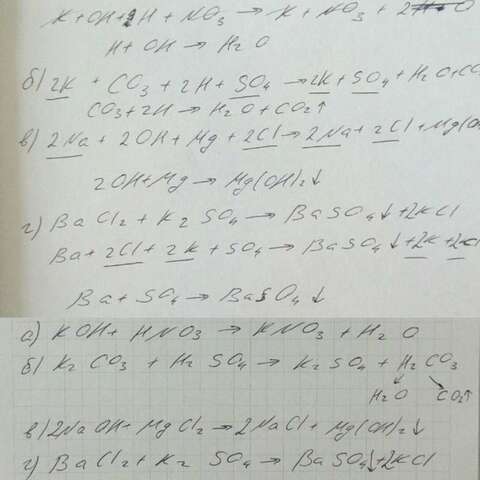 K + OH + H + NO3 → K + NO3 + H2O
H + OH → H2O
б) 2K + CO3 + 2H + SO4 → 2K + SO4 + H2O + CO
CO3 + 2H → H2O + CO2↑
в) 2Na + 2OH + Mg + 2Cl → 2Na + 2Cl + Mg(OH
2OH + Mg → Mg(OH)2↓
г) BaCl2 + K2SO4 → BaSO4↓ + 2KCl
Ba + 2Cl + 2K + SO4 → BaSO4↓ + 2K + 2Cl
Ba + SO4 → BaSO4↓
а) KOH + HNO3 → KNO3 + H2O
б) K2CO3 + H2SO4 → K2SO4 + H2CO3
H2O CO2↑
в) 2NaOH + MgCl2 → 2NaCl + Mg(OH)2↓
г) BaCl2 + K2SO4 → BaSO4↓ + 2KCl